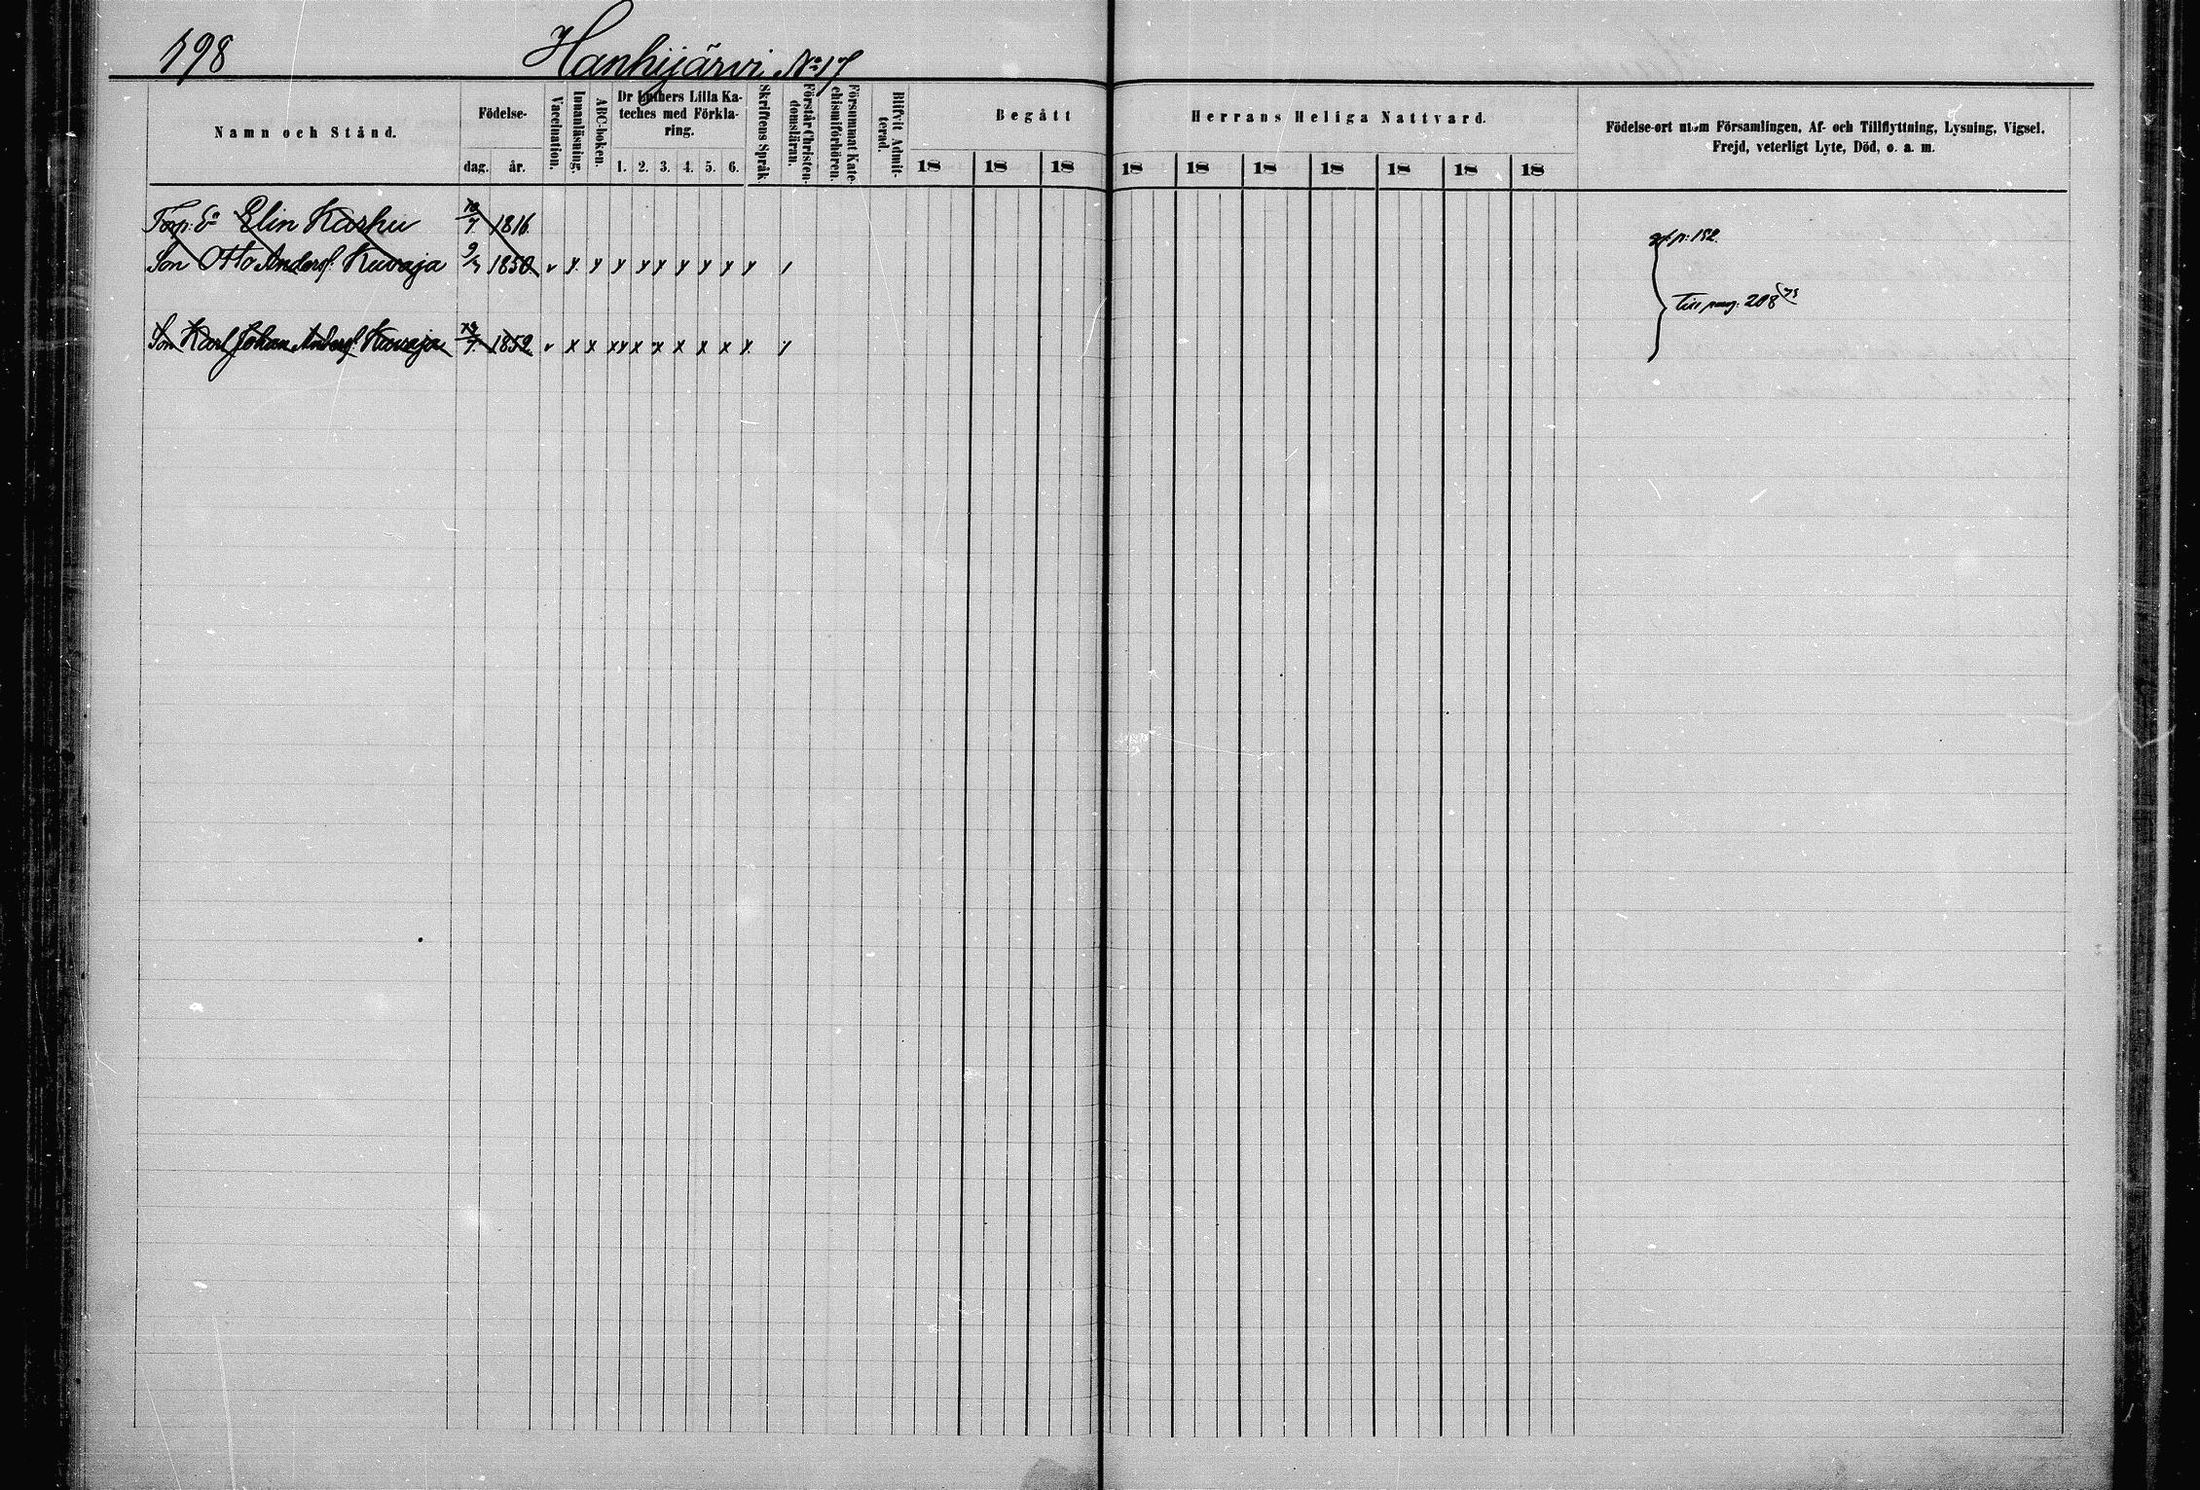 198 Hanhijärvi No 17
Namn och Stånd. Födelse- dag. år. Vaccination. Innanläsning. ABC-boken. Dr Luthers Lilla Kateches med Förklaring. 1. 2. 3. 4. 5. 6. Skriftens Språk. Förstår Christendomsläran. Försummat Katechismiförhören. Blifvit Admitterad. Begått Herrans Heliga Nattvard. 18 18 18 18 18 18 18 18 18 18 Födelse-ort utom Församlingen, Af- och Tillflyttning, Lysning, Vigsel. Frejd, veterligt Lyte, Död, o. a. m.
Elin Karhu 1816 p: 152.
Son Otto Andersf. Kuvaja 9/3 1850 v x x x x x x x x x /
Till pag: 208
Son Karl Johan Andersf. Kuvaja 1852 v x x x x x x x x x x /